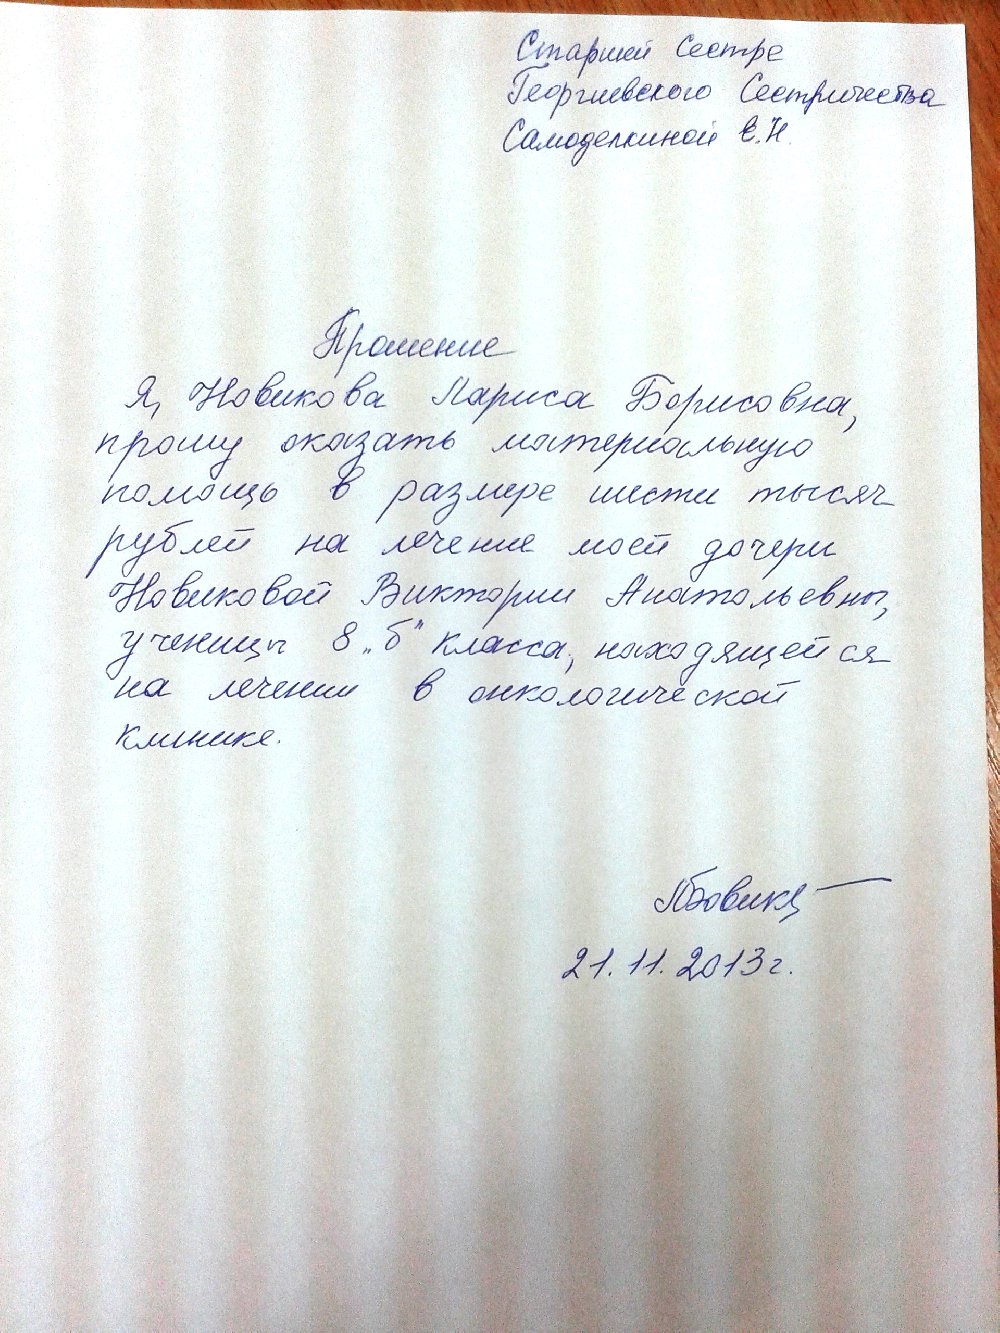 Старшей сестре
Георгиевского Сестричества
Самоделкиной Е.Н.
Прошение
Я, Новикова Лариса Борисовна,
прошу оказать материальную
помощь в размере шести тысяч
рублей на лечение моей дочери
Новиковой Виктории Анатольевны,
ученицы 8 „б" класса, находящейся
на лечении в онкологической
клинике.
21.11.2013г.